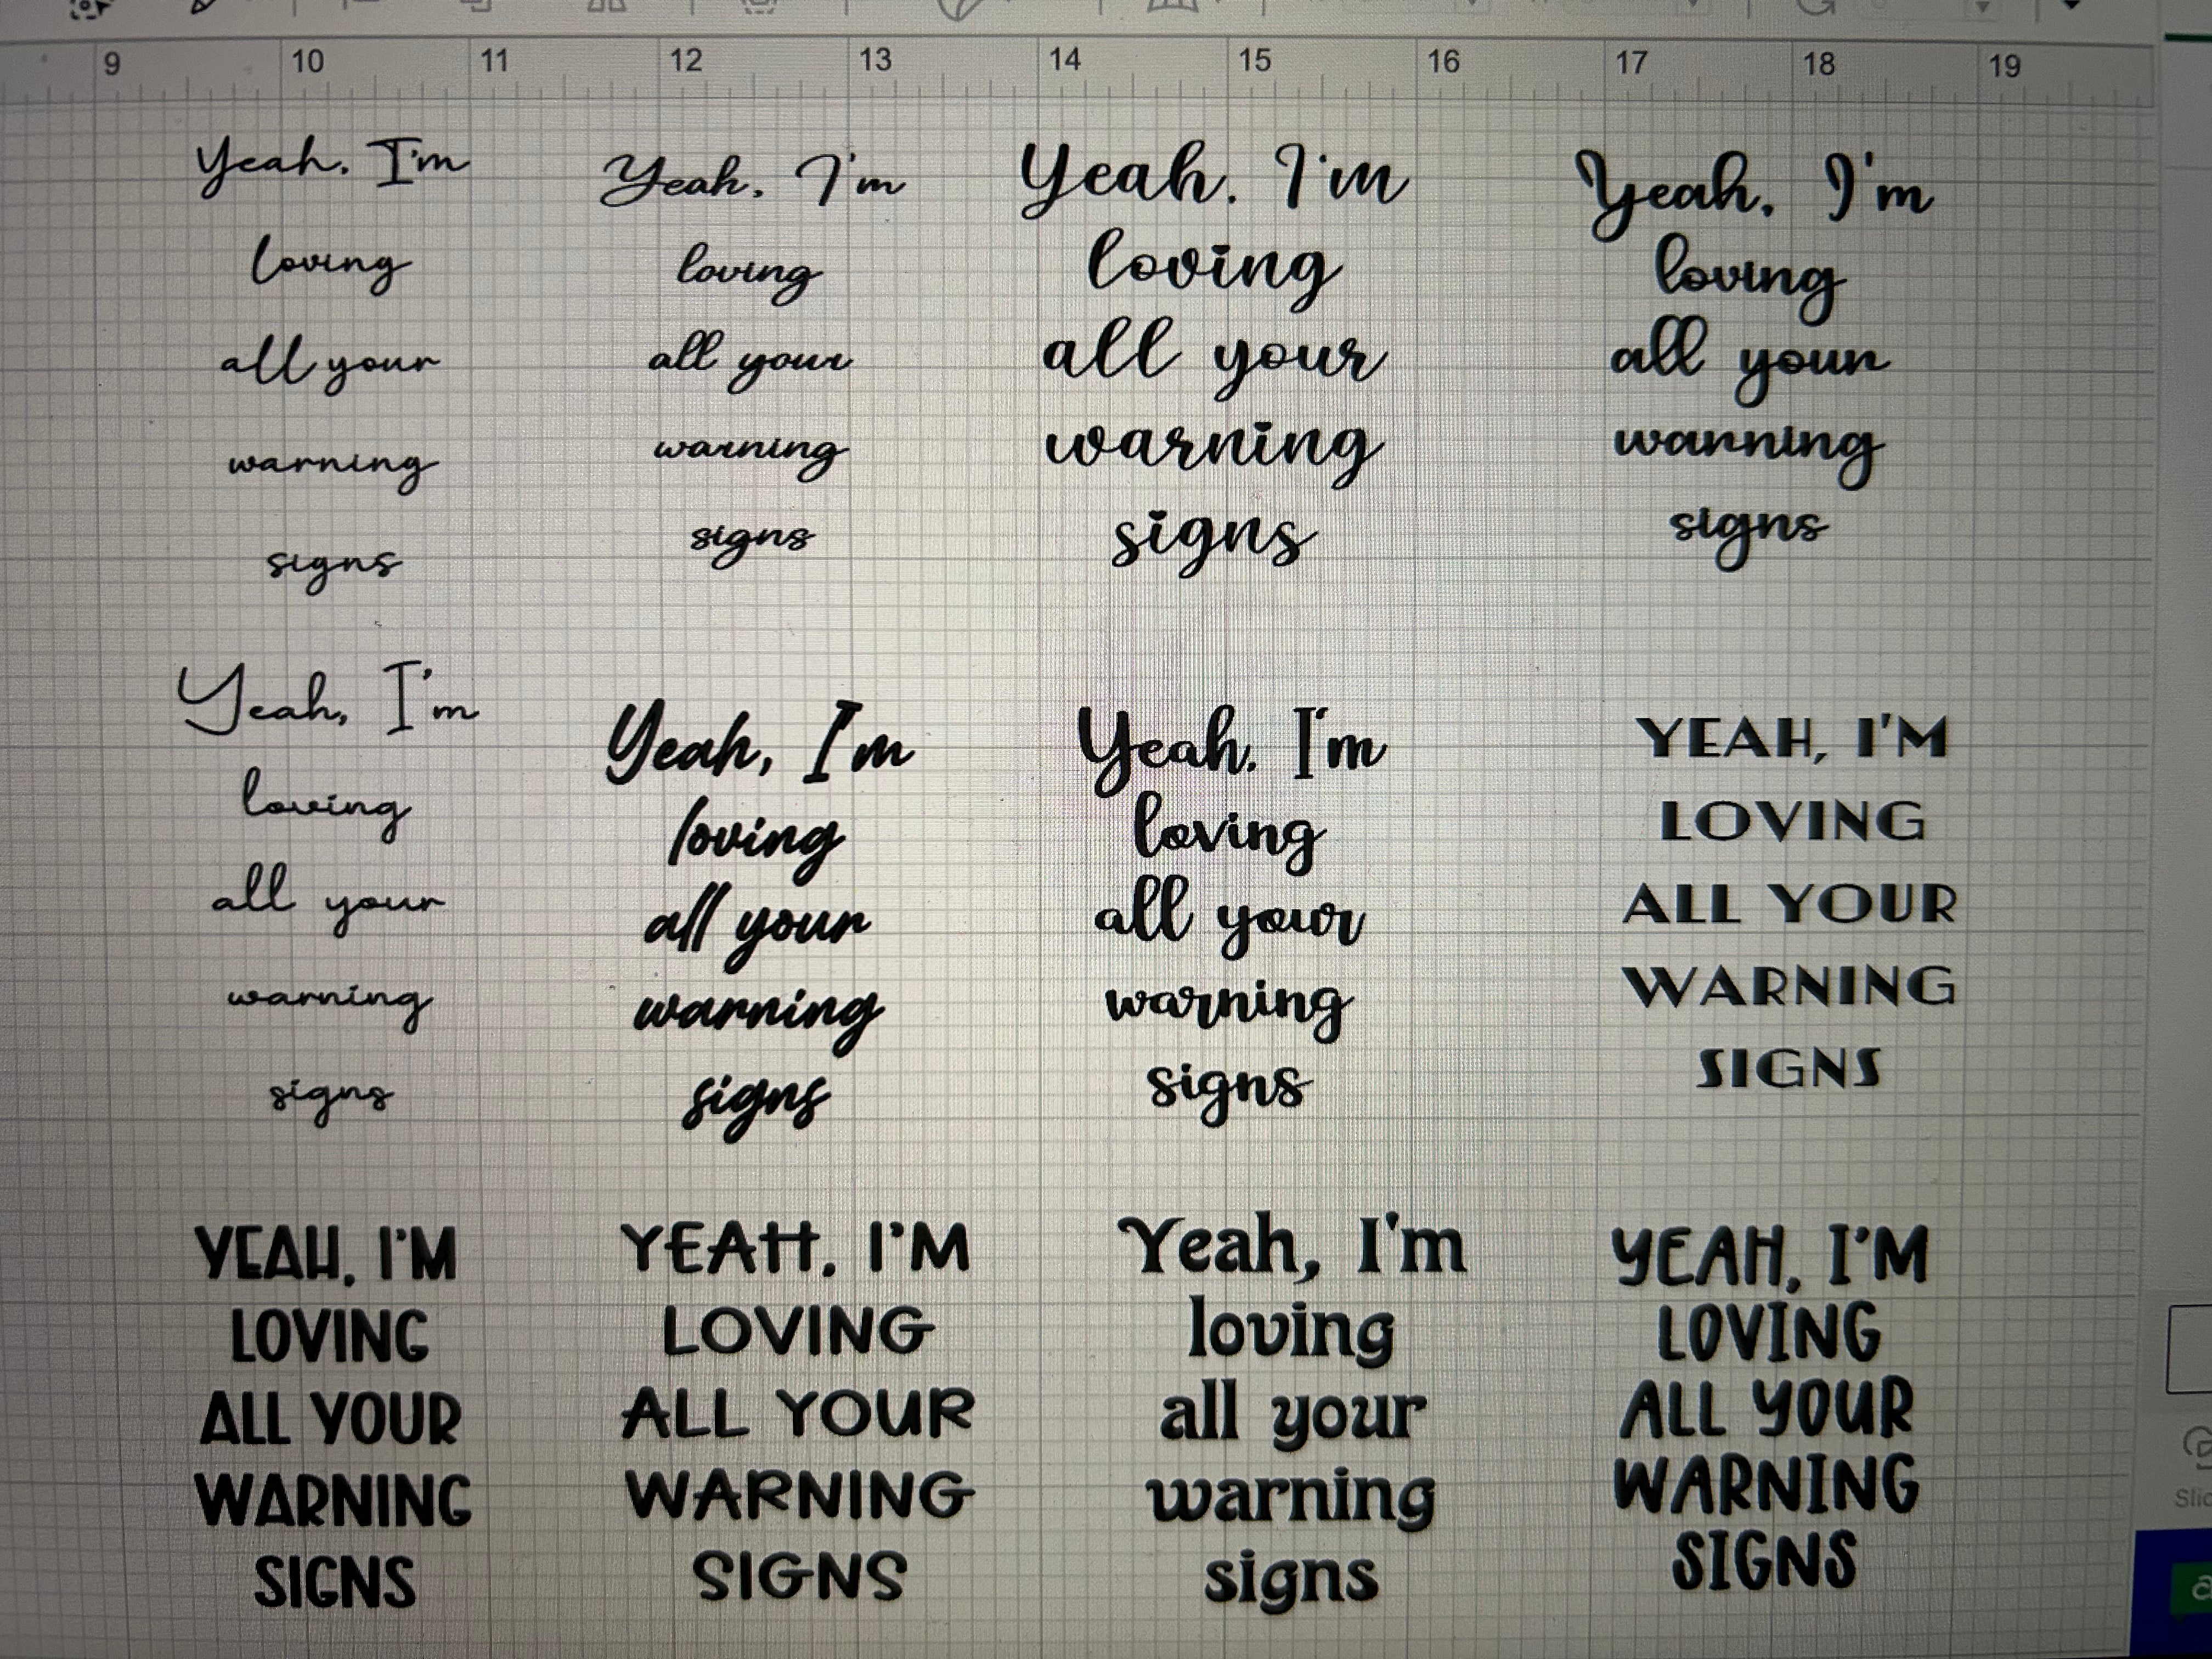 9 10 11 12 13 14 15 16 17 18 19
Yeah, I'm
loving
all your
warning
signs
Yeah, I'm
loving
all your
warning
signs
Yeah, I'm
loving
all your
warning
signs
Yeah, I'm
loving
all your
warning
signs
Yeah, I'm
loving
all your
warning
signs
Yeah, I'm
loving
all your
warning
signs
Yeah, I'm
loving
all your
warning
signs
YEAH, I'M
LOVING
ALL YOUR
WARNING
SIGNS
YEAH, I'M
LOVING
ALL YOUR
WARNING
SIGNS
YEAH, I'M
LOVING
ALL YOUR
WARNING
SIGNS
Yeah, I'm
loving
all your
warning
signs
YEAH, I'M
LOVING
ALL YOUR
WARNING
SIGNS